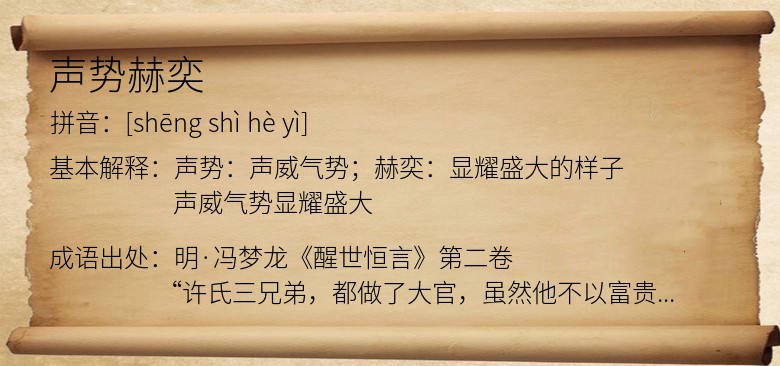 声势赫奕
拼音：[shēng shì hè yì]
基本解释：声势：声威气势；赫奕：显耀盛大的样子
声威气势显耀盛大
成语出处：明·冯梦龙《醒世恒言》第二卷
“许氏三兄弟，都做了大官，虽然他不以富贵...